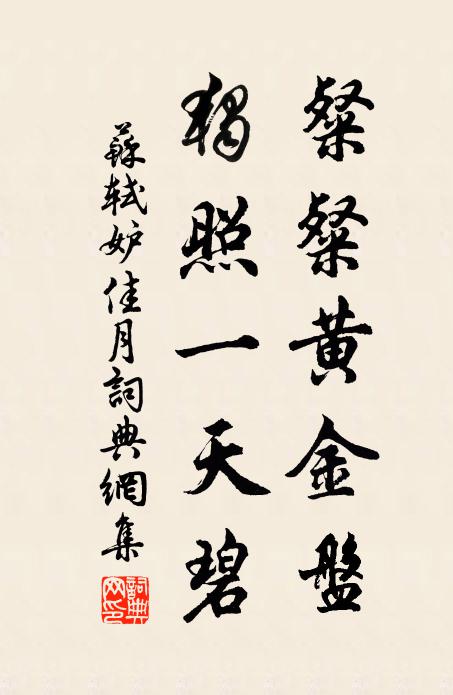 粲粲黃金盤
獨照一天碧
蘇軾妒佳月詞典網集
詞典網印